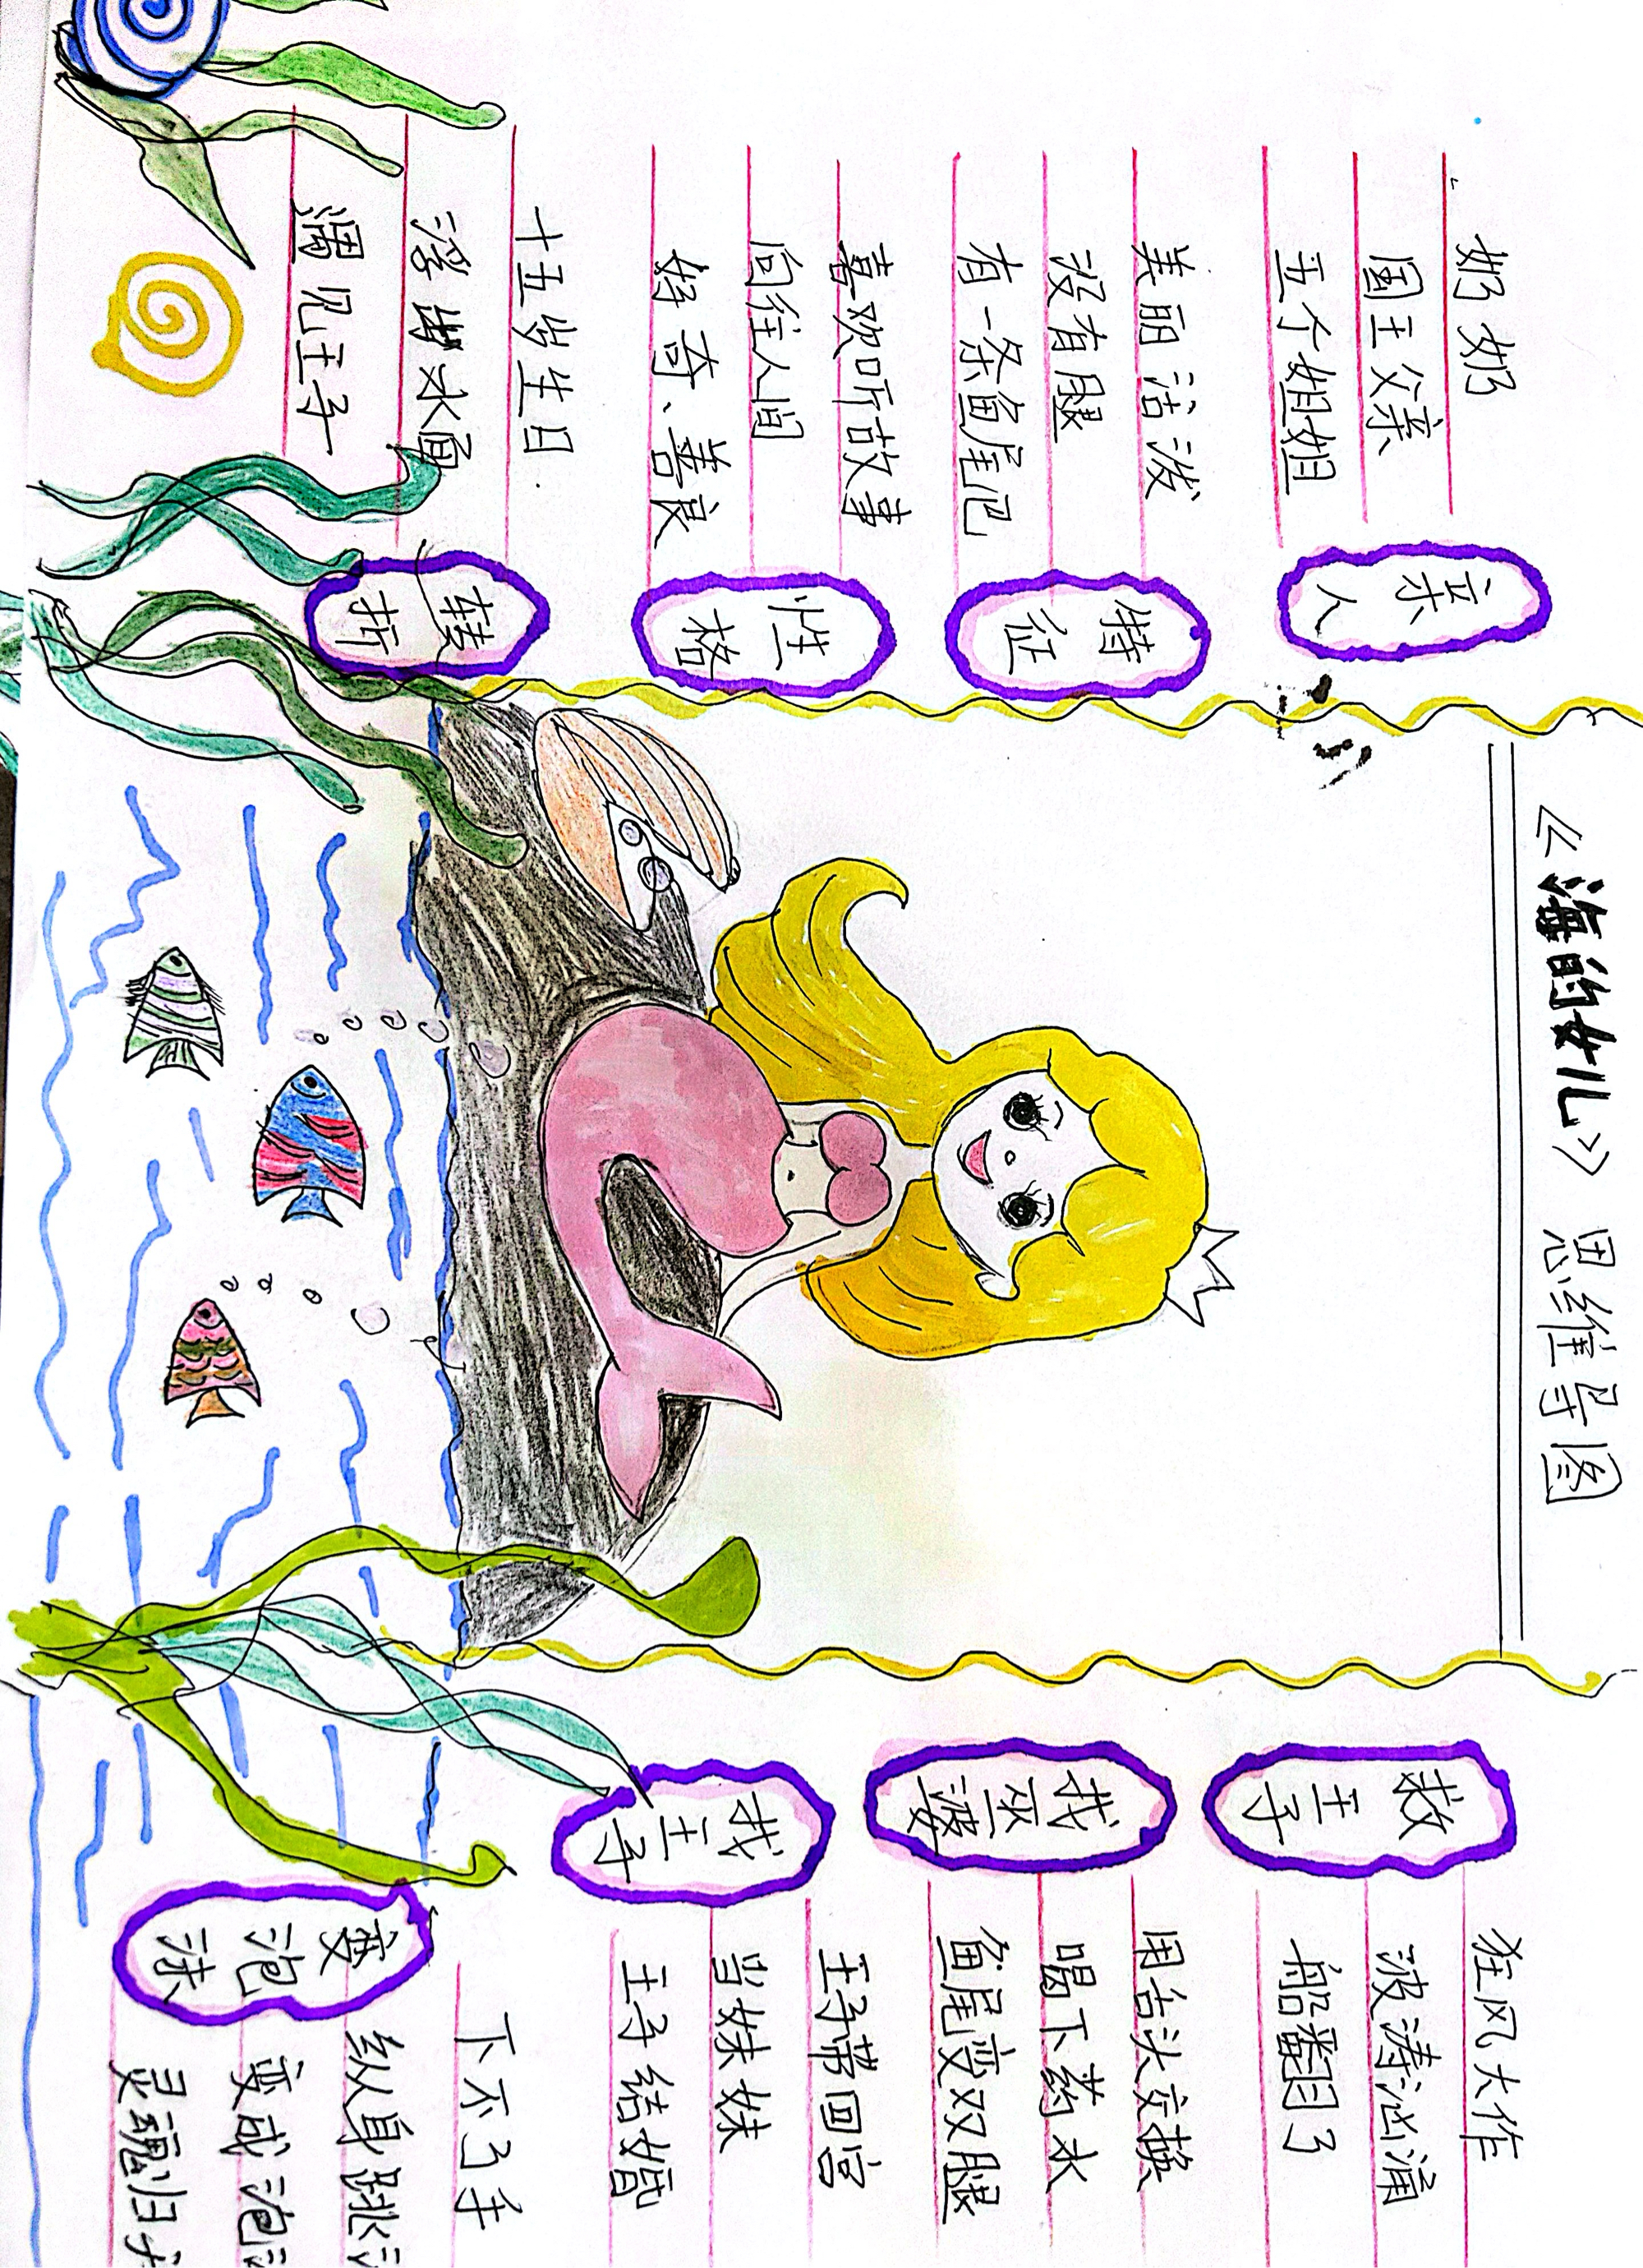 《海的女儿》思维导图
亲人
奶奶
国王父亲
五个姐姐
特征
美丽活泼
没有腿
有一条鱼尾巴
性格
喜欢听故事
向往人间
好奇、善良
转折
十五岁生日
浮出水面
遇见王子
救王子
狂风大作
波涛汹涌
船翻了
找巫婆
用舌头交换
喝下药水
鱼尾变双腿
找王子
王子带回宫
当妹妹
王子结婚
变泡沫
下不了手
纵身跳
变成泡
灵魂归